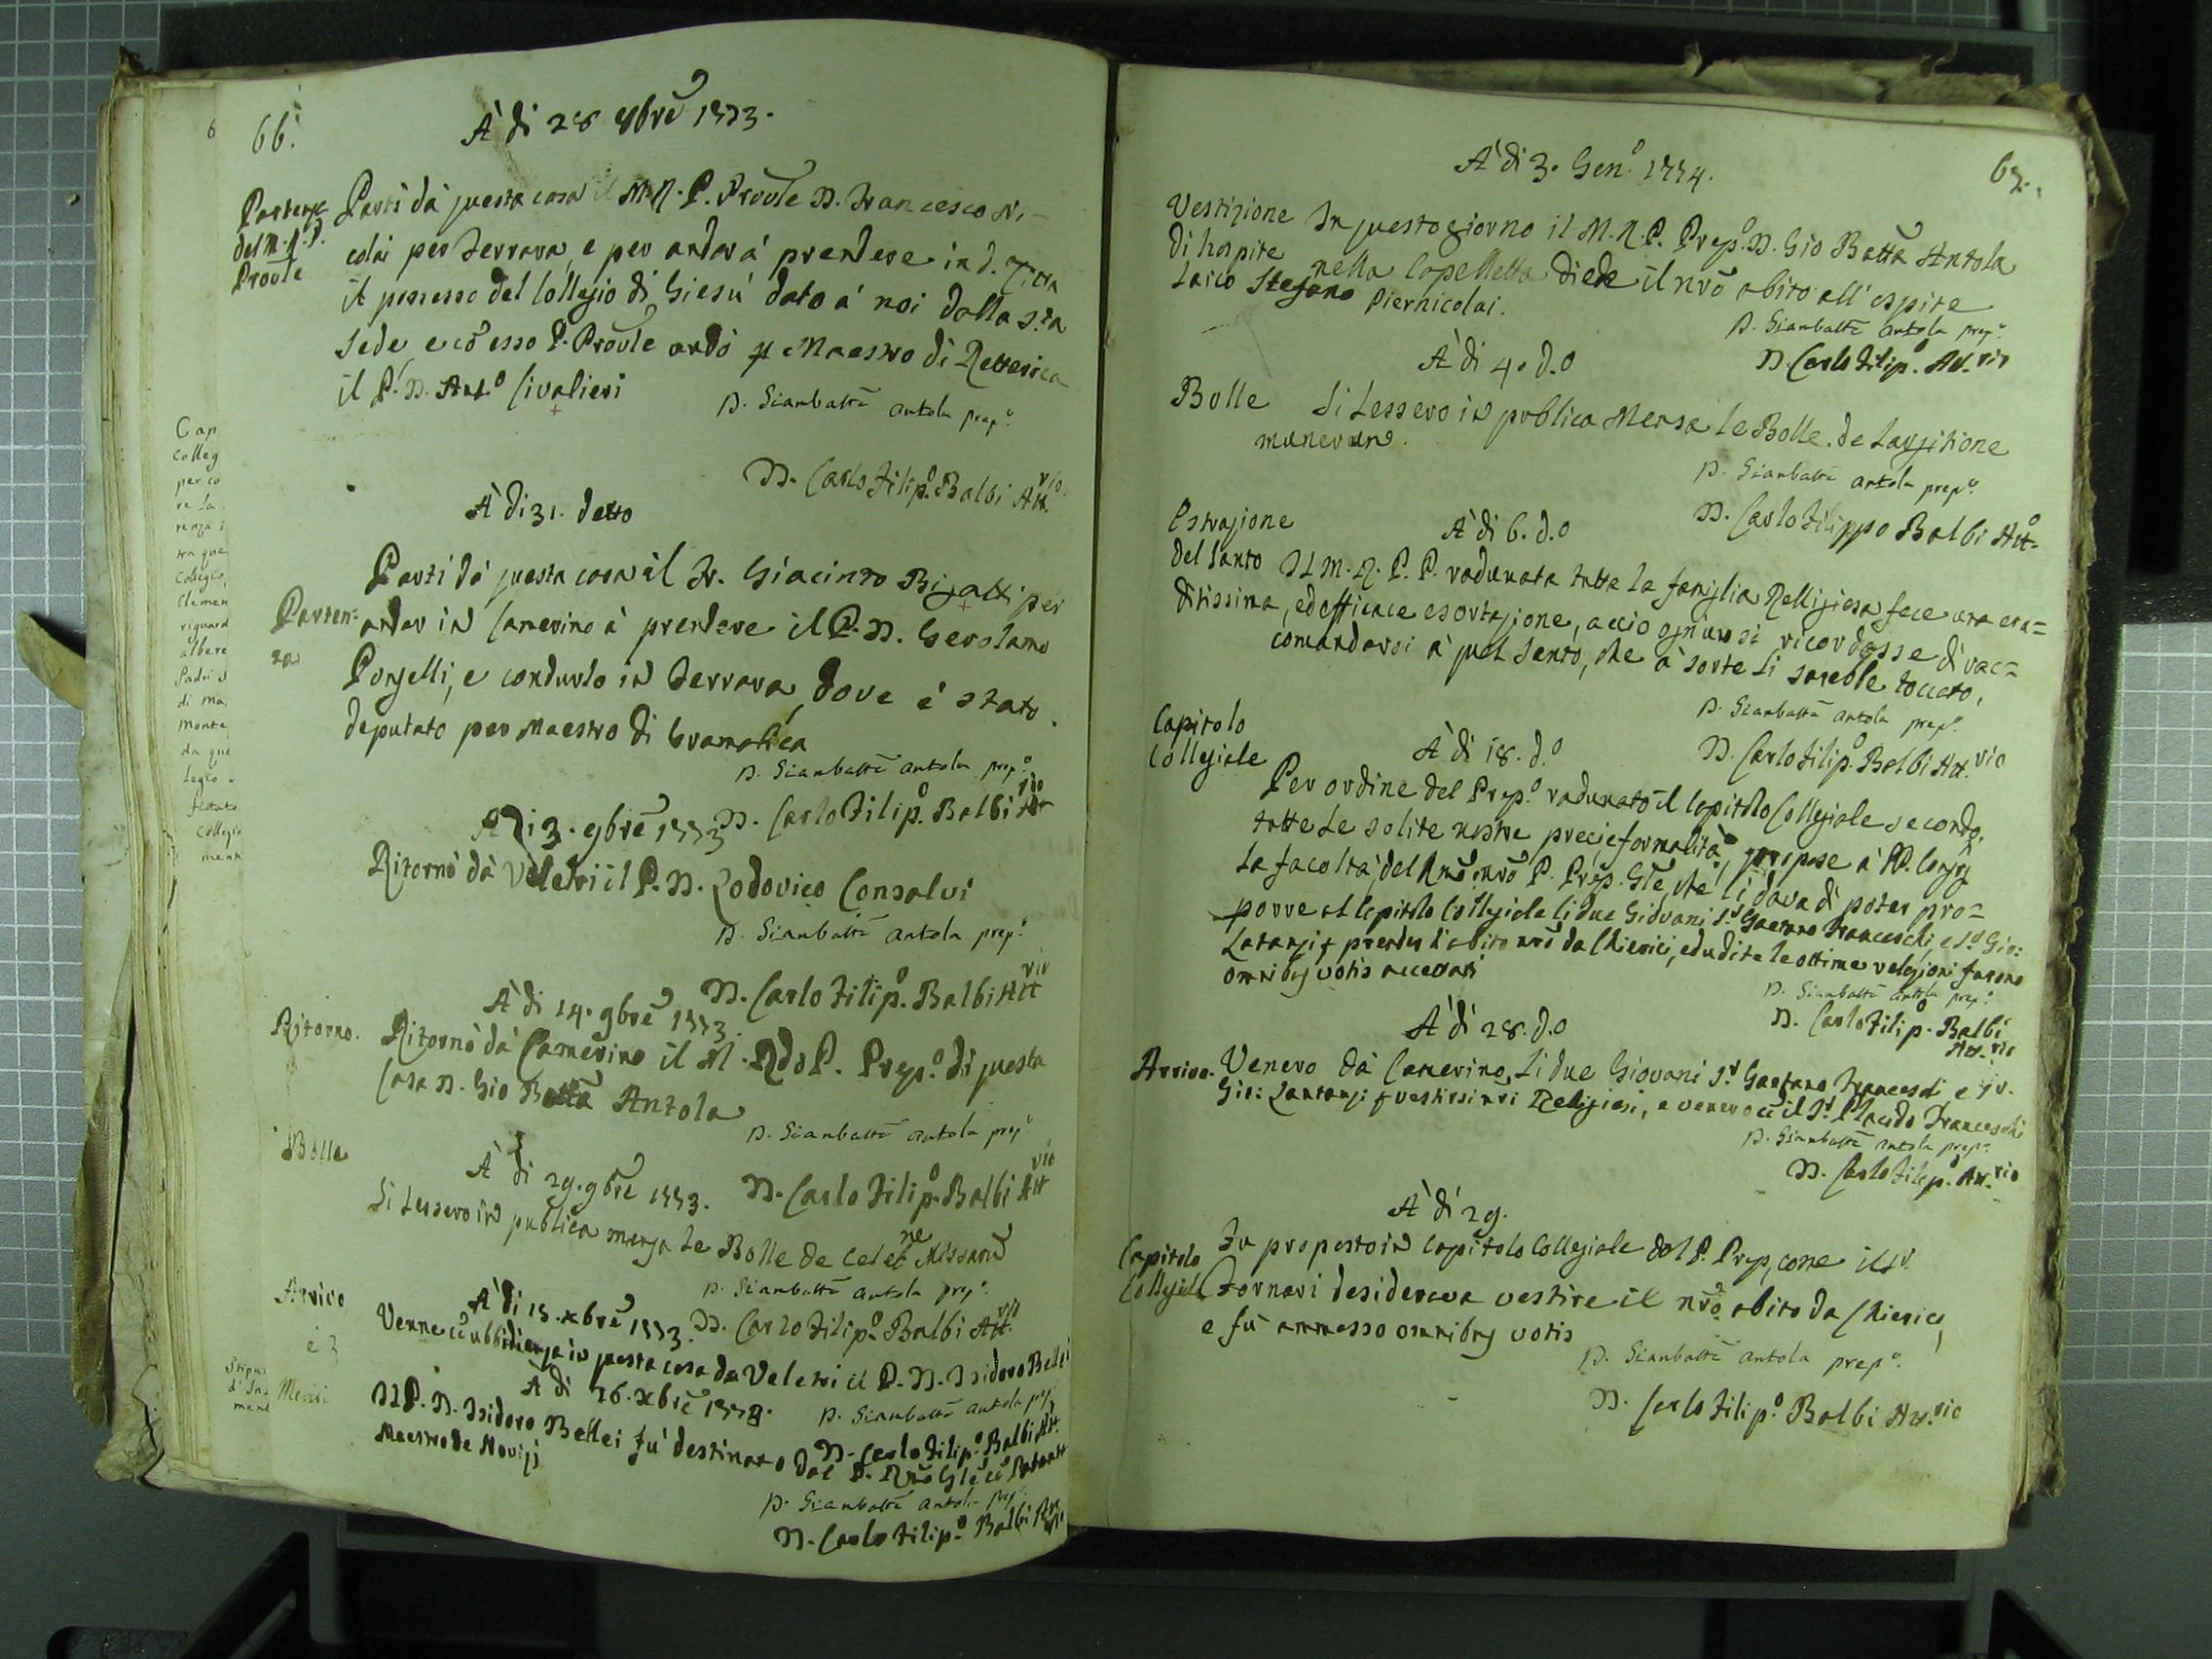 66.
À di 28 8bre 1773.
Partenza
del M. R. P.
Proule
Partì dà questa casa il M. R. P. Proule D. Francesco Ni-
colai per Ferrara, e per andar à prendere in d. Città
il possesso del Collegio di Giesù dato à noi dalla S.ta
Sede e cō esso P. Proule andò Maestro di Rettorica
il P. D. Ant.o Civalieri
D. Giambattā Antola prep.o
D. Carlo Filip.o Balbi Att.rio
À di 31. detto
Parten=
za
Partì dà questa casa il Fr. Giacinto Bigatti per
andar in Camerino à prendere il P. D. Gerolamo
Ponzelli, e condurlo in Ferrara, dove è stato
deputato per Maestro di Gramatica
D. Giambattā Antola prep.o
D. Carlo Filip.o Balbi Att.rio
A di 3. 9bre 1773
Ritornò dà Veletri il P. D. Lodovico Consalvi
D. Giambattā Antola prep.o
D. Carlo Filip.o Balbi Att.rio
À di 14. 9bre 1773.
Ritorno.
Ritornò dà Camerino il M. Rdo P. Prep.o di questa
Casa D. Gio Battā Antola
D. Giambattā Antola prep.o
Bolle
À di 29. 9bre 1773.
D. Carlo Filip.o Balbi Att.rio
Si Lessero in publica mensa le Bolle de celeb.ne Missarū
D. Giambattā Antola prep.o
Arrivo
À di 15. Xbre 1773.
D. Carlo Filip.o Balbi Att.rio
Venne cō ubbidienza in questa casa da Veletri il P. D. Isidoro Bellei
À di 26. Xbre 1773.
D. Giambattā Antola prep.o
D. Carlo Filip.o Balbi Att.
Il P. D. Isidoro Bellei fu' destinato dal P. Rmo Gle cō Patente
Maestro de Novizj
D. Giambattā Antola prep.o
D. Carlo Filip.o Balbi Att.rio
Cap
Colleg
per co
re la
renza i
tra que
Collegio,
Clemen
riguard
albere
Padri
di ma
monte
da que
legio
festato
Collegio
ment
67.
À di 3. Gen.o 1774.
Vestizione
di hospite
Laico
In questo giorno il M. R. P. Prep.o D. Gio Battā Antola
nella Capelletta diede il nrō abito all' ospite
Stefano Piernicolai.
D. Giambattā Antola prep.o
D. Carlo Filip.o Att.rio
À di 4. d.o
Bolle
Si Lessero in publica Mensa le Bolle de Largitione
munerum.
D. Giambattā Antola prep.o
D. Carlo Filippo Balbi Att.o
Estrazione
del Santo
À di 6. d.o
Il M. R. P. P. radunata tutta la famiglia Relligiosa fece una eru=
ditissima, ed efficace esortazione, acciò ogn'uno si ricordasse di rac=
comandarsi à quel Santo, che à sorte li sarebbe toccato,
D. Giambattā Antola prep.o
D. Carlo Filip.o Balbi Att.rio
Capitolo
Collegiale
À di 18. d.o
Per ordine del Prep.o radunato il Capitolo Collegiale secondo
tutte le solite nostre preci, e formalità, propose à PP. Congrg
la facoltà, del Rmō nrō P. Prep. Gle, che li dava di poter pro=
porre al Capitolo Collegiale li due Giovani S.r Gaetano Franceschi, e S.r Gio:
Latanzi prender l'abito nrō da Chierici, ed udite le ottime relazioni furono
omnibus votis accettati
D. Giambattā Antola prep.o
D. Carlo Filip.o Balbi
Att.rio
À di 28. d.o
Arrivo.
Venero dà Camerino, li due Giovani S.r Gaetano Franceschi e Sr.
Gio: Lantanzi vestirsi nri Religiosi, e venero cō il S.r Placido Franceschi
D. Giambattā Antola prep.o
D. Carlo Filip.o Att.rio
À di 29.
Capitolo
Collegiale
Fu proposto in Capitolo Collegiale dal P. Prep, come il Sr.
Fornari desiderava vestire il nrō abito da Chierico,
e fu ammesso omnibus votis
D. Giambattā Antola prep.o
D. Carlo Filip.o Balbi Att.rio